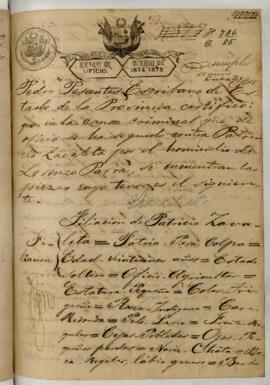 Nº 786
C. 85
SELLO DE
OFICIO.
BIENIO DE
1874 1875
Pedro Pesantes Escribano de Es-
tado de la Provincia certifico:
que en la causa criminal que de
oficio se ha seguido contra Patri-
cio Zavaleta por el homicidio de
Lorenzo Parra, se encuentran las
piezas cuyo tenor es el siguien-
te.
Filiacion de Patricio Zava-
leta = Patria Perú
Edad veintiunos años = Estado
soltero = Oficio Agricultor =
Estatura Pequeña = Color Tri-
gueño = Raza Indigena = Cara
Redonda = Pelo Lacio = Frente Re-
gular = Cejas Pobladas = Ojos Pe-
queños pardos = Nariz Chata = Bo-
ca Regular, labios gruesos = Barba